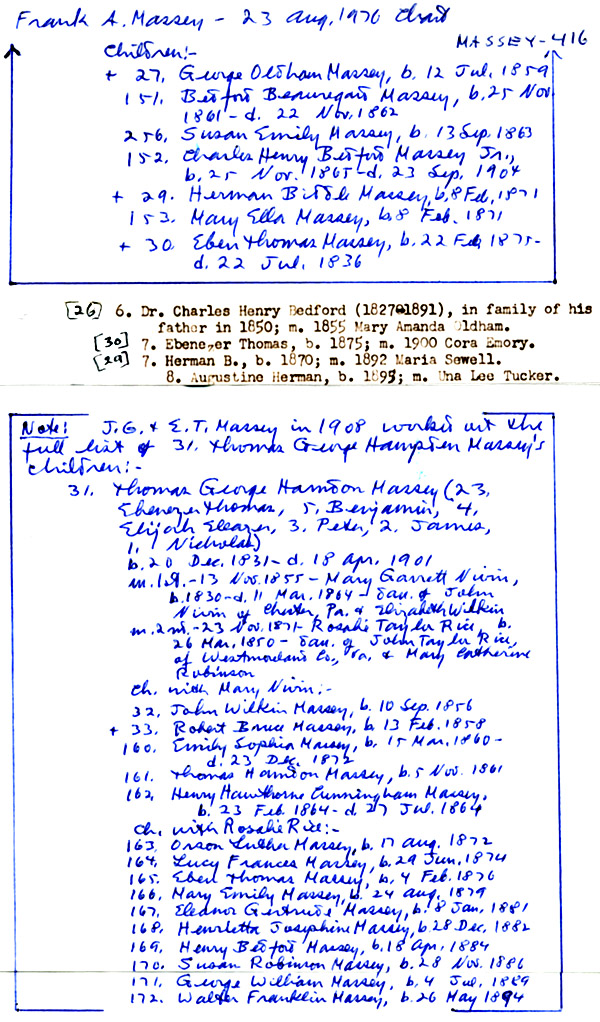 Frank A. Massey - 23 Aug, 1976 Chart
MASSEY-416
Children:-
+ 27. George Oldham Massey, b. 12 Jul. 1859
151. Bedford Beauregard Massey, b. 25 Nov.
1861 - d. 22 Nov. 1862
256. Susan Emily Massey, b. 13 Sep. 1863
152. Charles Henry Bedford Massey Jr.,
b. 25 Nov. 1865 - d. 23 Sep. 1904
+ 29. Herman Biddle Massey, b. 8 Feb. 1871
153. Mary Ella Massey, b. 8 Feb. 1871
+ 30. Eben Thomas Massey, b. 22 Feb 1875-
d. 22 Jul. 1836
[26] 6. Dr. Charles Henry Bedford (1827-1891), in family of his
father in 1850; m. 1855 Mary Amanda Oldham.
[30] 7. Ebenezer Thomas, b. 1875; m. 1900 Cora Emory.
[29] 7. Herman B., b. 1870; m. 1892 Maria Sewell.
8. Augustine Herman, b. 1895; m. Una Lee Tucker.
Note: J.G. & E.T. Massey in 1908 worked out the
full list of 31. Thomas George Hampden Massey's
children:-
31. Thomas George Hamdon Massey (23,
Ebenezer Thomas, 5. Benjamin, 4,
Elijah Eleazer, 3. Peter, 2. James,
1. Nicholas)
b. 20 Dec. 1831 - d. 18 Apr. 1901
m. 1st. - 13 Nov. 1855 - Mary Garrett Nivin,
b. 1830 - d. 11 Mar. 1864 - dau. of John
Nivin of Chester, Pa. & Elizabeth Wilkin
m. 2nd. - 23 Nov. 1871 - Rosalie Taylor Rice, b.
26 Mar. 1850 - dau. of John Taylor Rice,
of Westmoreland Co., Va. & Mary Catherine
Robinson
Ch. with Mary Nivin:-
32. John Wilkin Massey, b. 10 Sep. 1856
+ 33. Robert Bruce Massey, b. 13 Feb. 1858
160. Emily Sophia Massey, b. 15 Mar. 1860 -
d. 23 Dec. 1872
161. Thomas Hamdon Massey, b. 5 Nov. 1861
162. Henry Hawthorne Cunningham Massey,
b. 23 Feb. 1864 - d. 27 Jul. 1864
Ch. with Rosalie Rice:-
163. Orson Luther Massey, b. 17 Aug. 1872
164. Lucy Frances Massey, b. 29 Jun. 1874
165. Eben Thomas Massey, b. 4 Feb. 1876
166. Mary Emily Massey, b. 24 Aug. 1879
167. Eleanor Gertrude Massey, b. 8 Jan. 1881
168. Henrietta Josephine Massey, b. 28 Dec. 1882
169. Henry Bedford Massey, b. 18 Apr. 1884
170. Susan Robinson Massey, b. 28 Nov. 1886
171. George William Massey, b. 4 Jul. 1889
172. Walter Franklin Massey, b. 26 May 1894